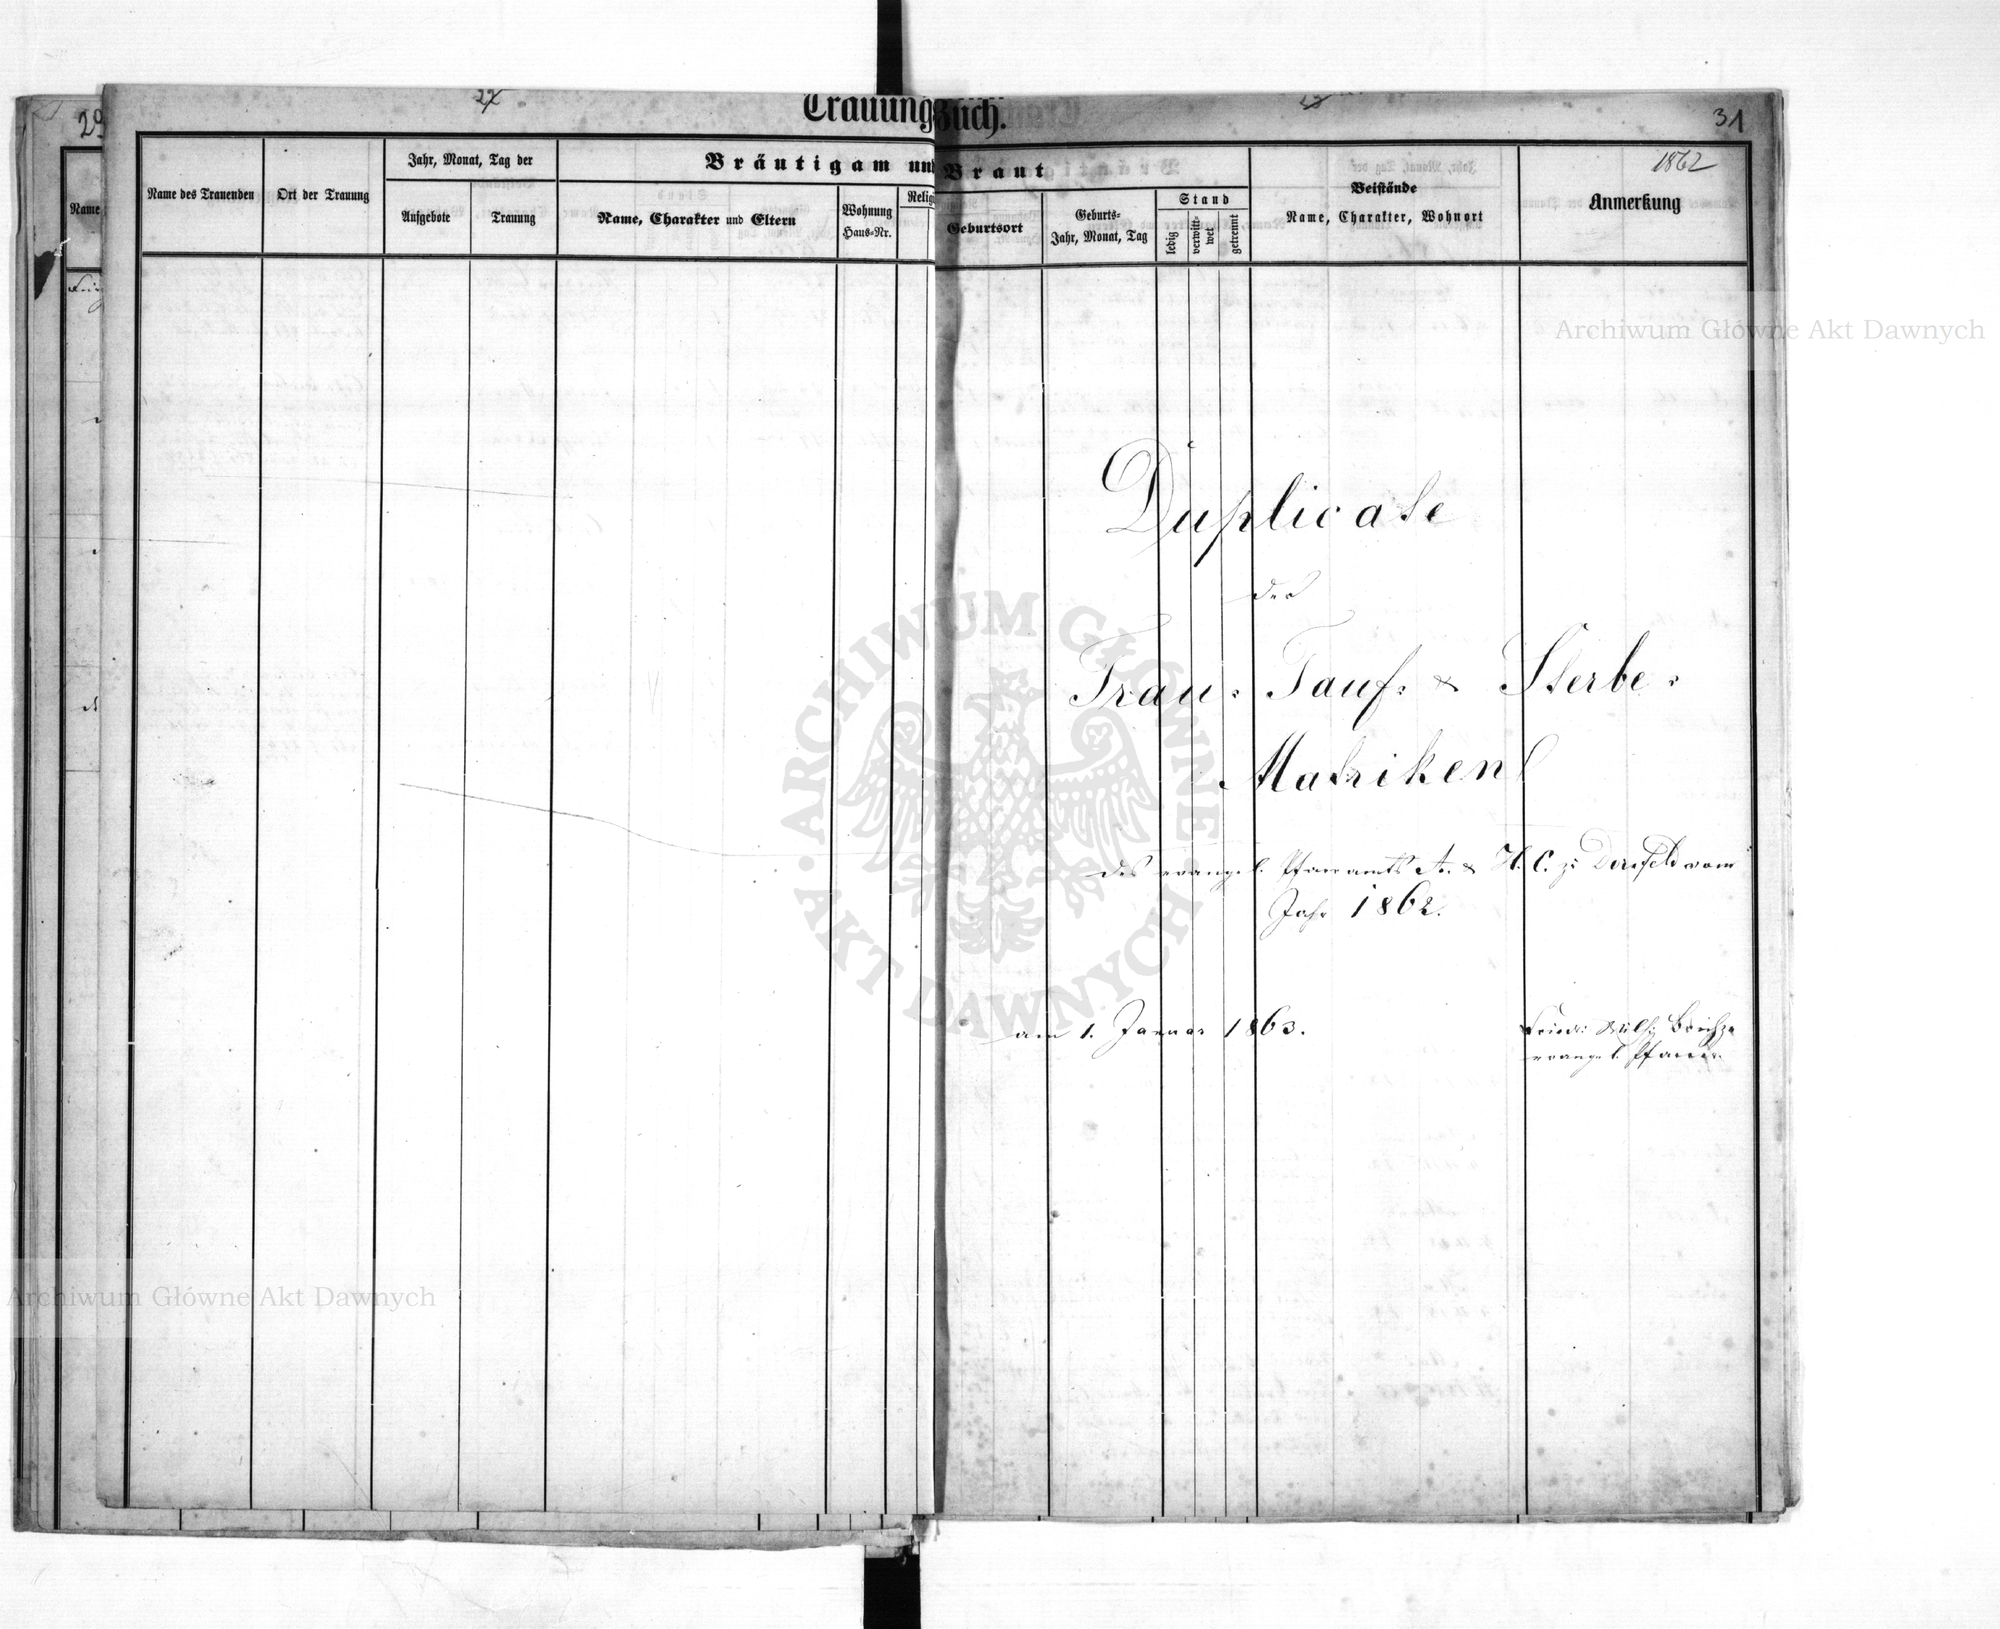 Trauungsbuch.
31
29
1862
Name des Trauenden
Ort der Trauung
Jahr, Monat, Tag der
Aufgebote
Trauung
Bräutigam und Braut
Name, Charakter und Eltern
Wohnung
Haus-Nr.
Relig
Geburtsort
Geburts-
Jahr, Monat, Tag
Stand
ledig
verwitt-
wet
getrennt
Beistände
Name, Charakter, Wohnort
Anmerkung
Name
Duplicate
der
Trau- Tauf- & Sterbe-
Matriken
des evangel. Pfarramts A. & H. C. zu Dornfeld vom
Jahr 1862.
am 1. Januar 1863.
evangel. Pfarrer
Archiwum Główne Akt Dawnych
ARCHIWUM GŁÓWNE AKT DAWNYCH
Archiwum Główne Akt Dawnych